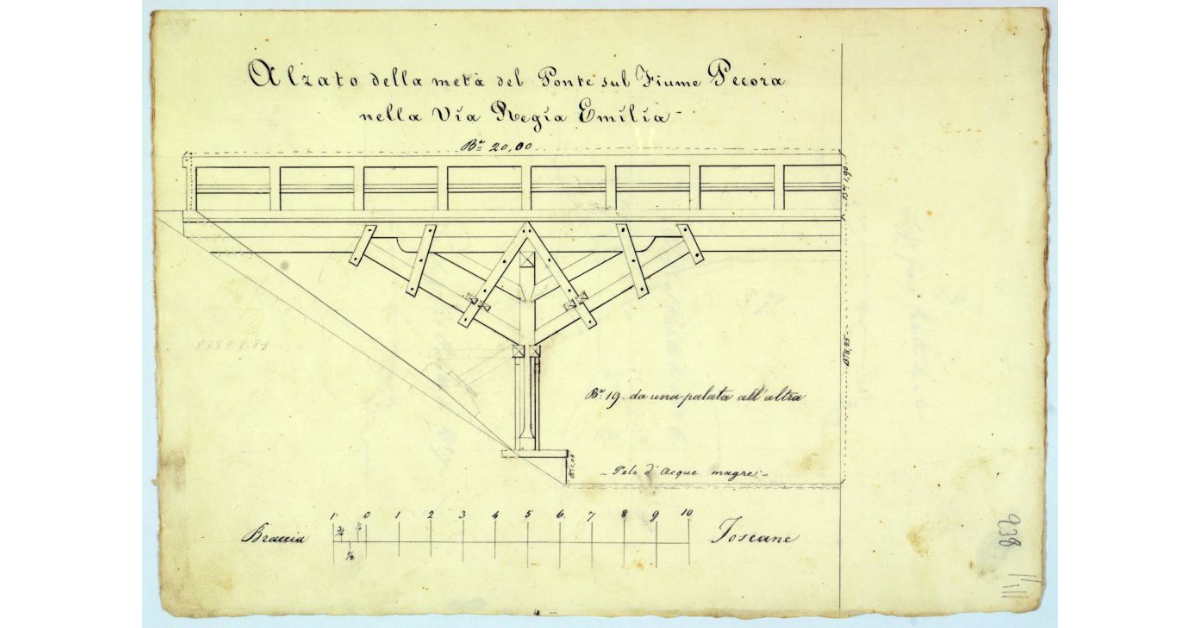 Alzato della metà del Ponte sul Fiume Pecora
nella Via Regia Emilia
Bᵃ 20,00
Bᵃ 1,90
Bᵃ 19 da una palata all'altra
Pelo d'acque magre
1 0 1 2 3 4 5 6 7 8 9 10
¾
½
Braccia
Toscane
938